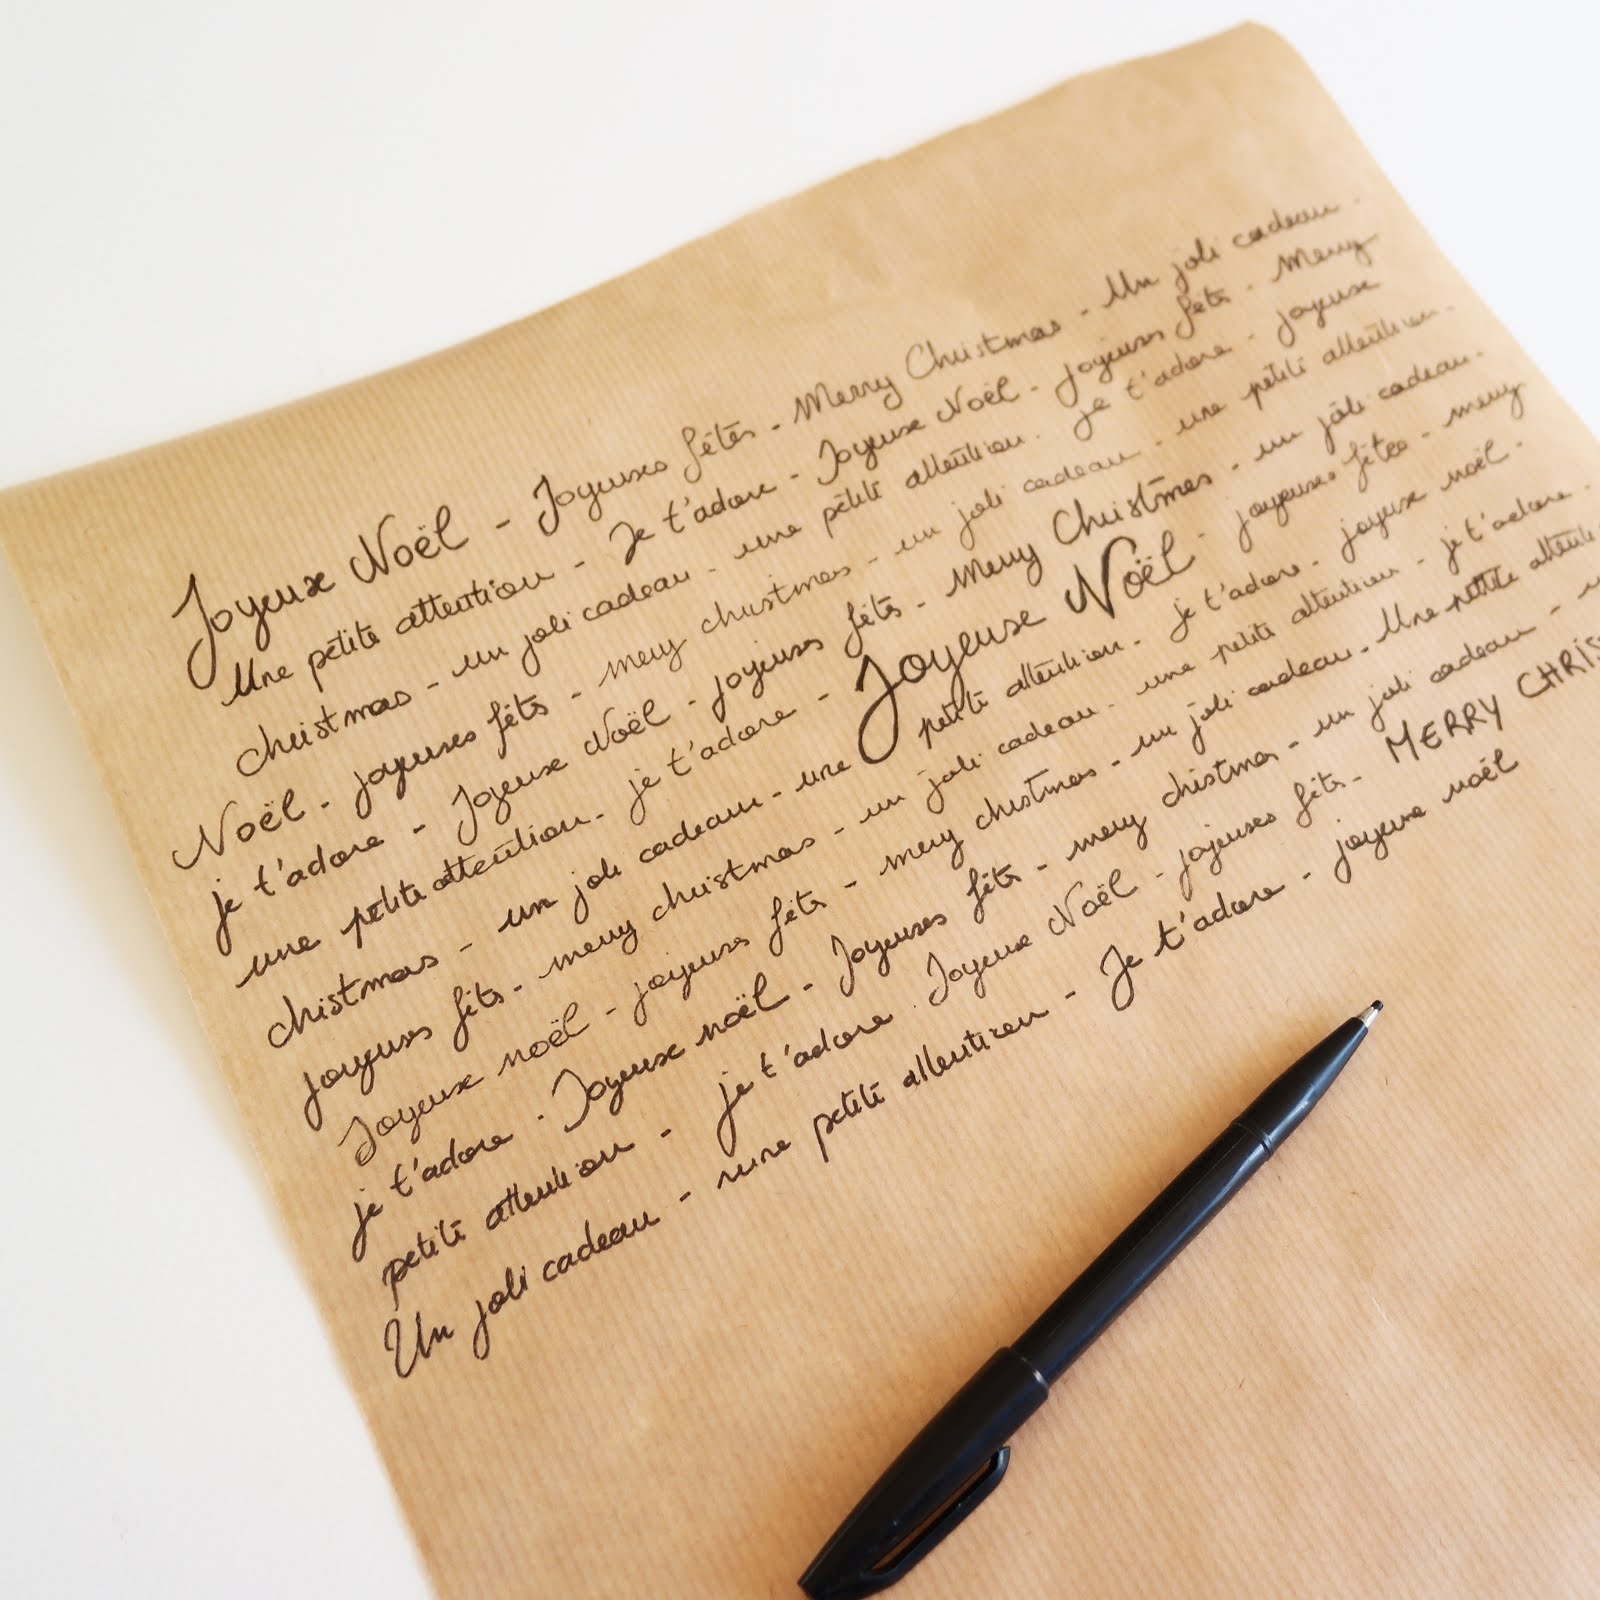 Joyeux Noël - Joyeuses fêtes - Merry Christmas - Un joli cadeau -
Une petite attention - Je t'adore - Joyeux Noël - joyeuses fêtes - Merry
christmas - un joli cadeau - une petite attention - je t'adore - joyeux
Noël - joyeuses fêtes - merry christmas - un joli cadeau - une petite attention -
je t'adore - Joyeux Noël - joyeuses fêtes - merry Christmas - un joli cadeau -
une petite attention - je t'adore - Joyeux Noël - joyeuses fêtes - merry
christmas - un joli cadeau - une petite attention - je t'adore - joyeux noël -
joyeuses fêtes - merry christmas - un joli cadeau - une petite attention - je t'adore -
Joyeux noël - joyeuses fêtes - merry christmas - un joli cadeau - Une petite attenti
je t'adore - Joyeux noël - Joyeuses fêtes - merry christmas - un joli cadeau -
petite attention - je t'adore - Joyeux Noël - joyeuses fêtes - MERRY CHRIS
Un joli cadeau - une petite attention - Je t'adore - joyeux noël